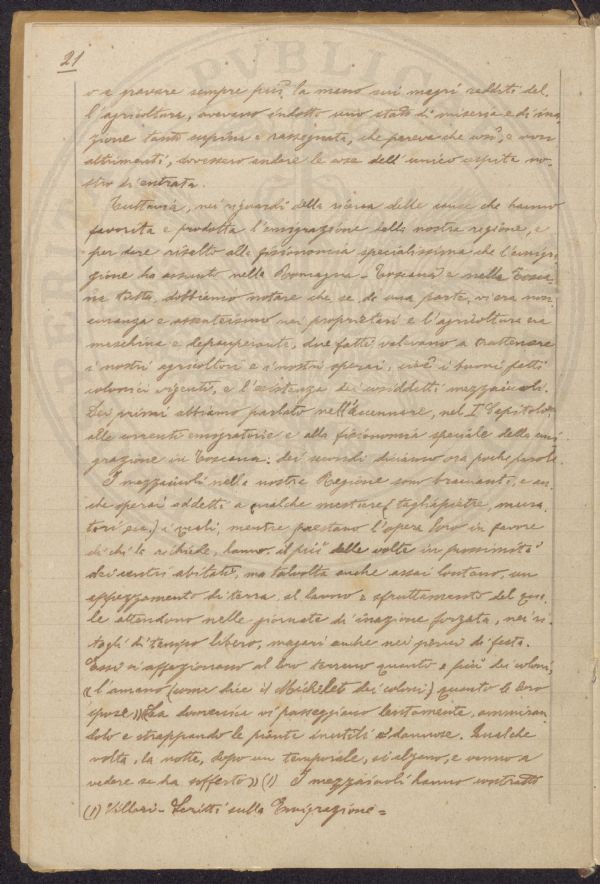 21
o a gravare sempre più la mano sui magri redditi del-
l'agricoltura, avevano indotto uno stato di miseria e di ina-
zione tanto supina e rassegnata, che pareva che così, e non
altrimenti, dovessero andare le cose dell'unico cespite no-
stro di entrata.
Tuttavia, nei riguardi della ricerca delle cause che hanno
favorita e prodotta l'emigrazione dalla nostra regione, e
per dare risalto alla fisionomia specialissima che l'emigra-
zione ha assunto nella Romagna-Toscana e nella Tosca-
na tutta, dobbiamo notare che se da una parte, v'era non-
curanza e assenteismo nei proprietari e l'agricoltura era
meschina e depauperante, due fatti valevano a trattenere
i nostri agricoltori e i nostri operai, cioè i buoni patti
colonici vigenti, e l'esistenza dei cosiddetti mezzaiuoli.
Dei primi abbiamo parlato nell'accennare, nel I° Capitolo,
alle correnti emigratorie e alla fisionomia speciale della emi-
grazione in Toscana: dei secondi diciamo ora poche parole.
I mezzaiuoli nella nostra Regione sono braccianti, e an-
che operai addetti a qualche mestiere (tagliapietre, mura-
tori, ecc.) i quali, mentre prestano l'opera loro in favore
di chi la richiede, hanno, il più delle volte in prossimità
dei centri abitati, ma talvolta anche assai lontano, un
appezzamento di terra, al lavoro e sfruttamento del qua-
le attendono nelle giornate di inazione forzata, nei ri-
tagli di tempo libero, magari anche nei giorni di festa.
Essi si affezionano al loro terreno quanto e più dei coloni,
« l'amano (come dice il Michelet dei coloni) quanto le loro
spose » « La domenica vi passeggiano lentamente, ammiran-
dolo e strappando le piante inutili e dannose. Qualche
volta, la notte, dopo un temporale, si alzano, e vanno a
vedere se ha sofferto » (1) I mezzaiuoli hanno contratto
(1) Villari - Scritti sulla Emigrazione =